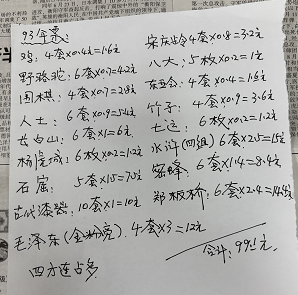 93年票:
鸡: 4套×0.4=1.6元
野骆驼: 6套×0.7=4.2元
围棋: 4套×0.7=2.8元
人士: 6套×0.9=5.4元
长白山: 6套×1=6元
杨虎城: 6枚×0.2=1.2元
石窟: 5套×1.5=7.5元
古代漆器: 10套×1=10元
毛泽东(金粉亮) 4套×3=12元
四方连占多
宋庆龄 4套×0.8=3.2元
八大: 5枚×0.2=1元
东亚会: 4套×0.4=1.6元
竹子: 4套×0.9=3.6元
七运: 6枚×0.2=1.2元
水浒(四组) 6套×2.5=15元
蜜蜂: 6套×1.4=8.4元
郑板桥: 6套×2.4=14.4元
合计: 99.1元